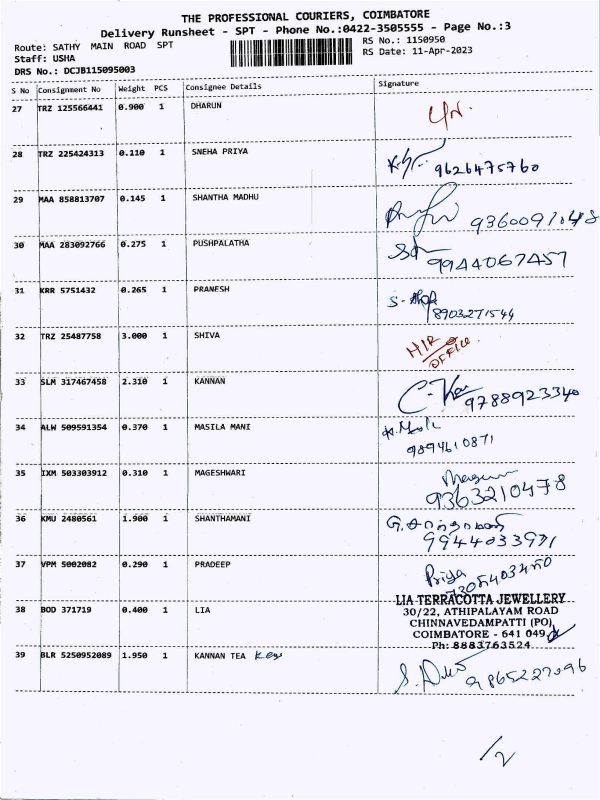 THE PROFESSIONAL COURIERS, COIMBATORE
Delivery Runsheet - SPT - Phone No.:0422-3505555 - Page No.:3
Route: SATHY MAIN ROAD SPT RS No.: 1150950
Staff: USHA RS Date: 11-Apr-2023
DRS No.: DCJB115095003
S No Consignment No Weight PCS Consignee Details Signature
27 TRZ 125566441 0.900 1 DHARUN
28 TRZ 225424313 0.110 1 SNEHA PRIYA 9626475760
29 MAA 858813707 0.145 1 SHANTHA MADHU 9360091048
30 MAA 283092766 0.275 1 PUSHPALATHA 9944067457
31 KRR 5751432 0.265 1 PRANESH
8903271544
32 TRZ 25487758 3.000 1 SHIVA
OFFICE
33 SLM 317467458 2.310 1 KANNAN 9788923340
34 ALW 509591354 0.370 1 MASILA MANI
9894610871
35 IXM 503303912 0.310 1 MAGESHWARI
9363210478
36 KMU 2480561 1.900 1 SHANTHAMANI
9944033971
37 VPM 5002082 0.290 1 PRADEEP Priya
38 BOD 371719 0.400 1 LIA
LIA TERRACOTTA JEWELLERY
30/22, ATHIPALAYAM ROAD
CHINNAVEDAMPATTI (PO),
COIMBATORE - 641 049.
Ph: 8883763524
39 BLR 5250952089 1.950 1 KANNAN TEA
9865227096
/2